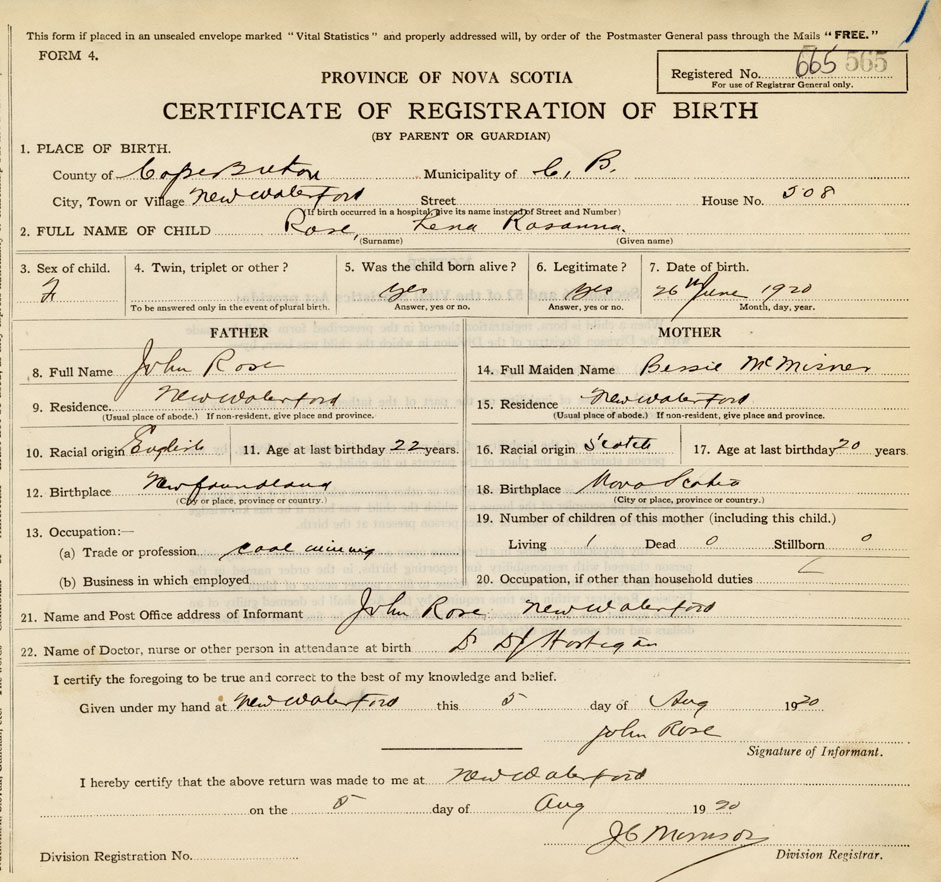 This form if placed in an unsealed envelope marked "Vital Statistics" and properly addressed will, by order of the Postmaster General pass through the Mails "FREE."
FORM 4.
Registered No. 665 565
For use of Registrar General only.
PROVINCE OF NOVA SCOTIA
CERTIFICATE OF REGISTRATION OF BIRTH
(BY PARENT OR GUARDIAN)
1. PLACE OF BIRTH.
County of Cape Breton Municipality of C. B.
City, Town or Village New Waterford Street House No. 508
(If birth occurred in a hospital, give its name instead of Street and Number)
2. FULL NAME OF CHILD Rose, Lena Rosanna.
(Surname) (Given name)
3. Sex of child. 4. Twin, triplet or other? 5. Was the child born alive? 6. Legitimate? 7. Date of birth.
F yes yes 26th June 1920
To be answered only in the event of plural birth. Answer, yes or no. Answer, yes or no. Month, day, year.
FATHER MOTHER
8. Full Name John Rose 14. Full Maiden Name Bessie
9. Residence New Waterford 15. Residence New Waterford
(Usual place of abode.) If non-resident, give place and province. (Usual place of abode.) If non-resident, give place and province.
10. Racial origin English 11. Age at last birthday 22 years. 16. Racial origin Scotch 17. Age at last birthday 20 years.
12. Birthplace Newfoundland 18. Birthplace Nova Scotia
(City or place, province or country.) (City or place, province or country.)
13. Occupation:— 19. Number of children of this mother (including this child.)
(a) Trade or profession coal mining Living 1 Dead 0 Stillborn 0
(b) Business in which employed 20. Occupation, if other than household duties
21. Name and Post Office address of Informant John Rose New Waterford
22. Name of Doctor, nurse or other person in attendance at birth Dr
I certify the foregoing to be true and correct to the best of my knowledge and belief.
Given under my hand at New Waterford this 5 day of Aug 1920
John Rose
Signature of Informant.
I hereby certify that the above return was made to me at New Waterford
on the 5 day of Aug 1920
Division Registration No. Division Registrar.